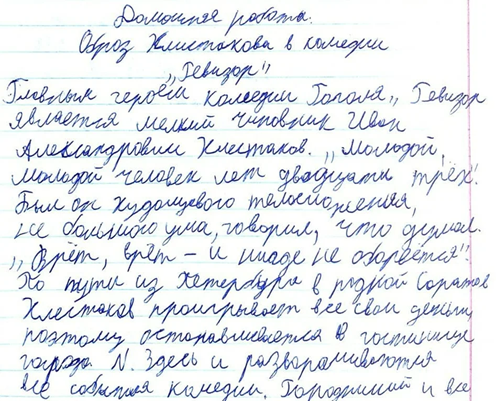 Домашняя работа.
Образ Хлестакова в комедии
„Ревизор"
Главным героем комедии Гоголя „Ревизор
является мелкий чиновник Иван
Александрович Хлестаков. „Молодой,
молодой человек лет двадцати трёх.
Был он худощавого телосложения,
не большого ума, говорил, что думал.
„Врёт, врёт – и нигде не оборвётся".
По пути из Петербурга в родной Саратов
Хлестаков проигрывает все свои деньги,
поэтому останавливается в гостинице
города N. Здесь и разворачиваются
все события комедии. Городничий и все